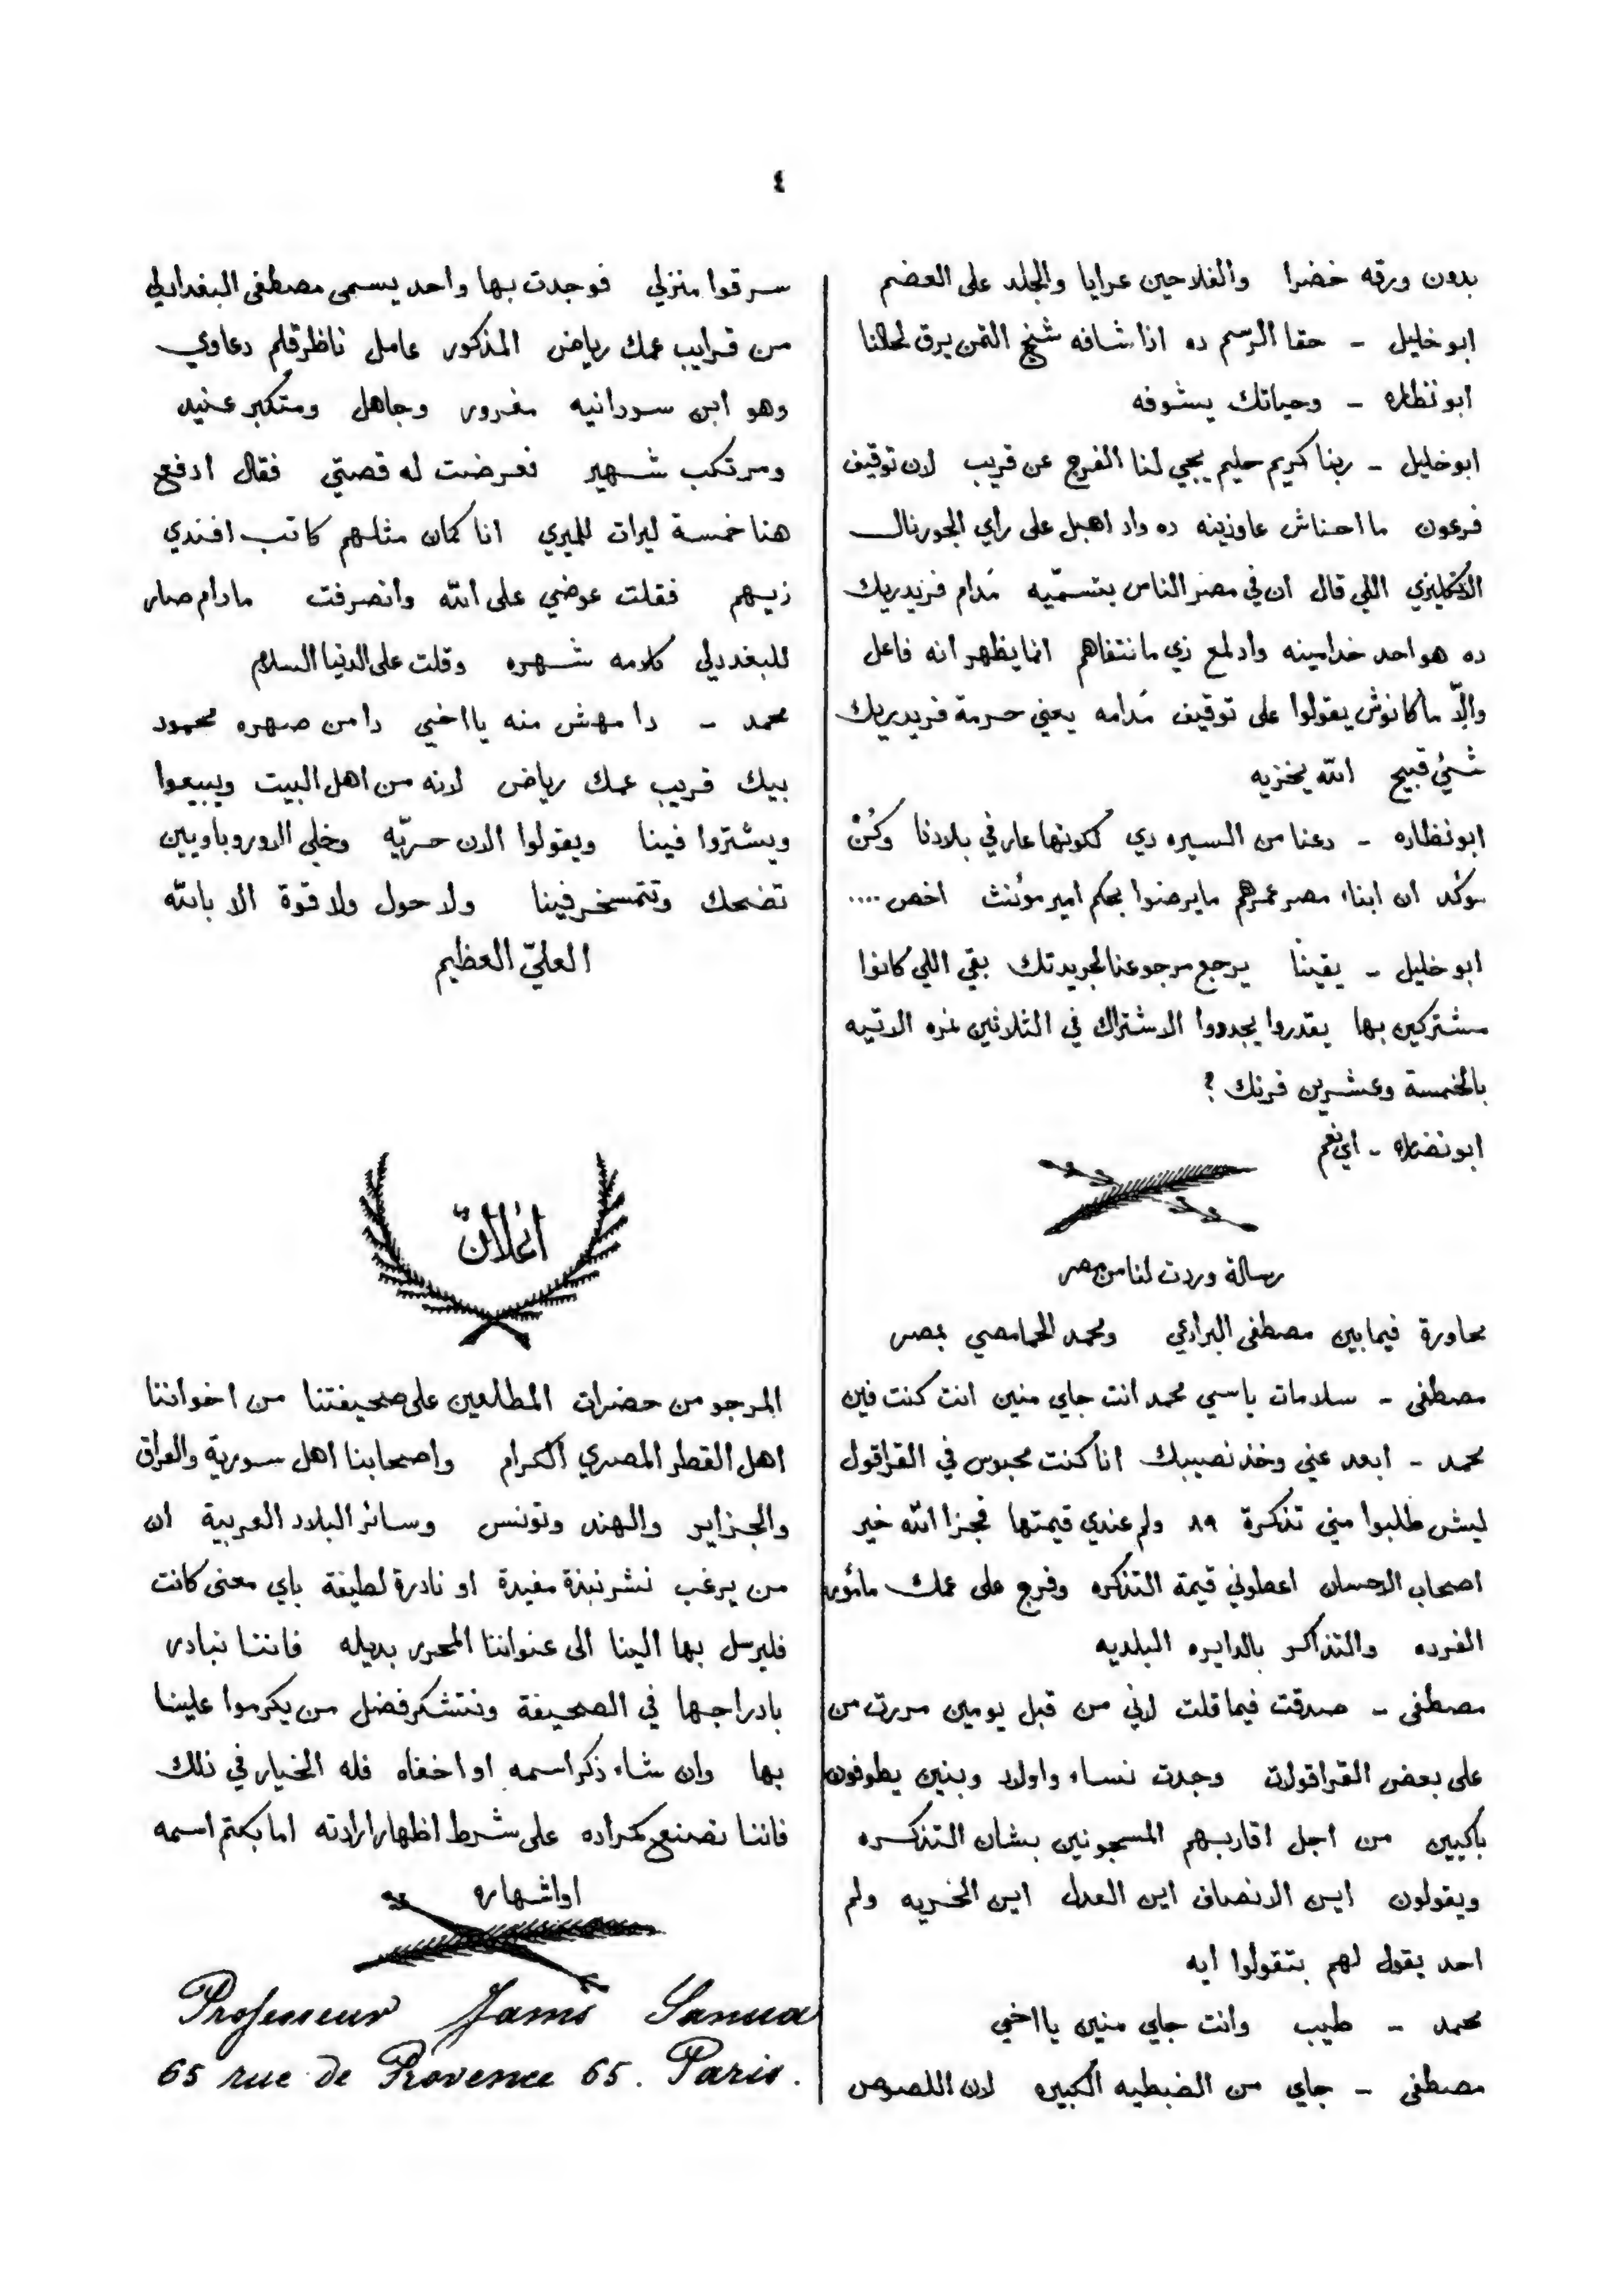 ٤
بدون ورقه خضرا والفلاحين عرايا والجلد على العضم
ابو خليل - حقا الرسم ده اذا شافه شيخ التمن يرق لحالنا
ابو نظاره - وحياتك يشوفه
ابو خليل - ربنا كريم حليم يجي لنا الفرج عن قريب لان توقيف
فرعون ما احناش عاوزينه ده واد اهبل على راي الجورنال
الانكليزي اللي قال ان في مصر الناس بتسمّيه مَدام فريدريك
ده هو احد خدامينه واد لمع زي ما نتفاهم انما يظهر انه فاعل
والّا ما كانوش يقولوا على توقيف مَدامه يعني حرمة فريدريك
شئ قبيح الله يخزيه
ابو نظاره - دعنا من السيره دي لكونها عار في بلادنا وكُنْ
موكد ان ابناء مصر عمرهم ما يرضوا بحكم امير مؤنث اخص ....
ابو خليل - يقينًا يرجع مرجوعنا لجريدتك بقي اللي كانوا
مشتركين بها يقدروا يجددوا الاشتراك في الثلاثين نمره الاتيه
بالخمسة وعشرين فرنك ؟
ابو نضاره - اي نعم
رسالة وردت لنا من مصر
محاورة فيما بين مصطفى البرادعي ومحمد الحمامصي بمصر
مصطفى - سلامات يا سي محمد انت جاي منين انت كنت فين
محمد - ابعد عني وخذ نصيبك انا كنت محبوس في القراقول
ليش طلبوا مني تذكرة ٨٩ ولم عندي قيمتها فجزا الله خير
اصحاب الاحسان اعطوني قيمة التذكره وفرج على عمك مأمور
الفرده والتذاكر بالدايره البلديه
مصطفى - صدقت فيما قلت لاني من قبل يومين مررت من
على بعض القراقولات وجدت نساء واولاد وبنين يطوفون
باكيين من اجل اقاربهم المسجونين بشان التذكره
ويقولون اين الانصاف اين العدل اين الحريه ولم
احد يقول لهم بتقولوا ايه
محمد - طيب وانت جاي منين يا اخي
مصطفى - جاي من الضبطيه الكبيره لان اللصوص
سرقوا منزلي فوجدت بها واحد يسمى مصطفى البغدادلي
من قرايب عمك رياض المذكور عامل ناظر قلم دعاوي
وهو ابن سودانيه مغرور وجاهل ومتكبر عنيد
ومرتكب شهير فعرضت له قصتي فقال ادفع
هنا خمسة ليرات للميري انا كمان مثلهم كاتب افندي
زيهم فقلت عوضي على الله وانصرفت مادام صار
للبغددلي كلامه شهره وقلت على الدنيا السلام
محمد - دا مهش منه يا اخي دا من صهره محمود
بيك قريب عمك رياض لانه من اهل البيت ويبيعوا
ويشتروا فينا ويقولوا الان حريّه وخلي الاوروباويين
تضحك وتتمسخر فينا ولا حول ولا قوة الا بالله
العليّ العظيم
اعلان
المرجو من حضرات المطلعين على صحيفتنا من اخواننا
اهل القطر المصري الكرام واصحابنا اهل سورية والعراق
والجزاير والهند وتونس وسائر البلاد العربية ان
من يرغب نشر نبذة مفيدة او نادرة لطيفة باي معنى كانت
فليرسل بها الينا الى عنواننا المحرر بديله فاننا نبادر
بادراجها في الصحيفة ونتشكر فضل من يكرموا علينا
بها وان شاء ذكر اسمه او اخفاه فله الخيار في ذلك
فاننا نصنع كمراده على شرط اظهار ارادته اما بكتم اسمه
او اشهاره
Professeur James Sanua
65 rue de Provence 65. Paris.